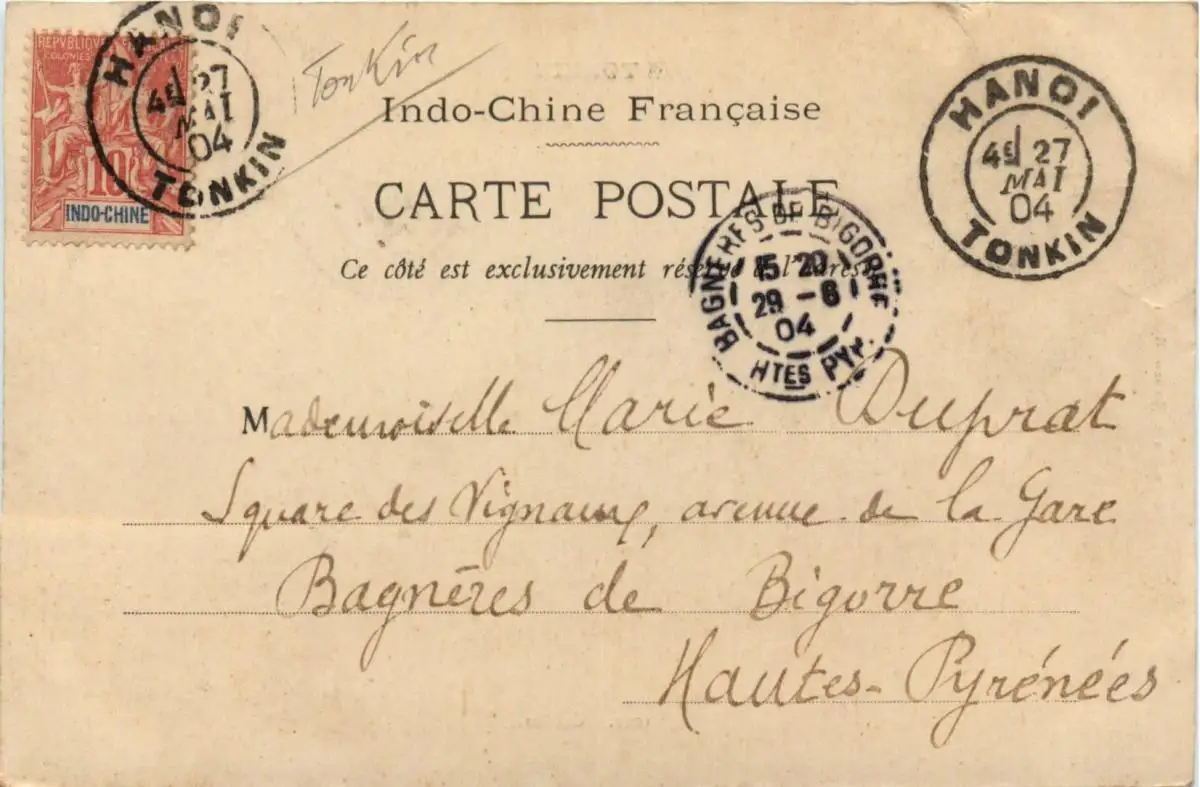 REPVBLIQUE FRANÇAISE
COLONIES
10
INDO-CHINE
HANOI
4E 27
MAI
04
TONKIN
Tonkin
Indo-Chine Française
CARTE POSTALE
Ce côté est exclusivement réservé à l'adresse
HANOI
4E 27
MAI
04
TONKIN
BAGNÈRES DE BIGORRE
15 20
29 -6
04
HTES PYR.
Mademoiselle Marie Duprat
Square des Vignaux, avenue de la Gare
Bagnères de Bigorre
Hautes-Pyrénées